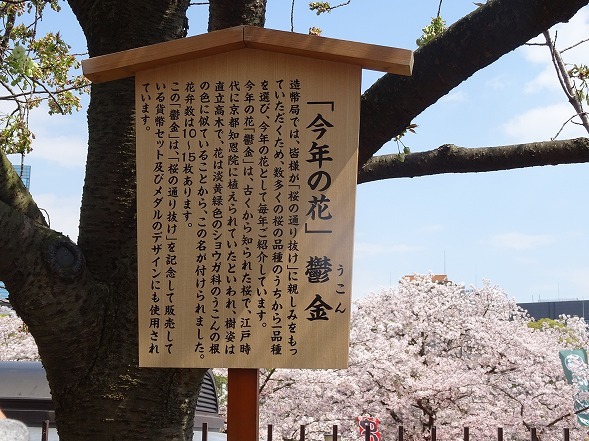 「今年の花」 鬱金
うこん
造幣局では、皆様が「桜の通り抜け」に親しみをもっ
ていただくため、数多くの桜の品種のうちから一品種
を選び、今年の花として毎年ご紹介しています。
今年の花「鬱金」は、古くから知られた桜で、江戸時
代に京都知恩院に植えられていたといわれ、樹姿は
直立高木で、花は淡黄緑色のショウガ科のうこんの根
の色に似ていることから、この名が付けられました。
花弁数は10～15枚あります。
この「鬱金」は、「桜の通り抜け」を記念して販売して
いる貨幣セット及びメダルのデザインにも使用され
ています。